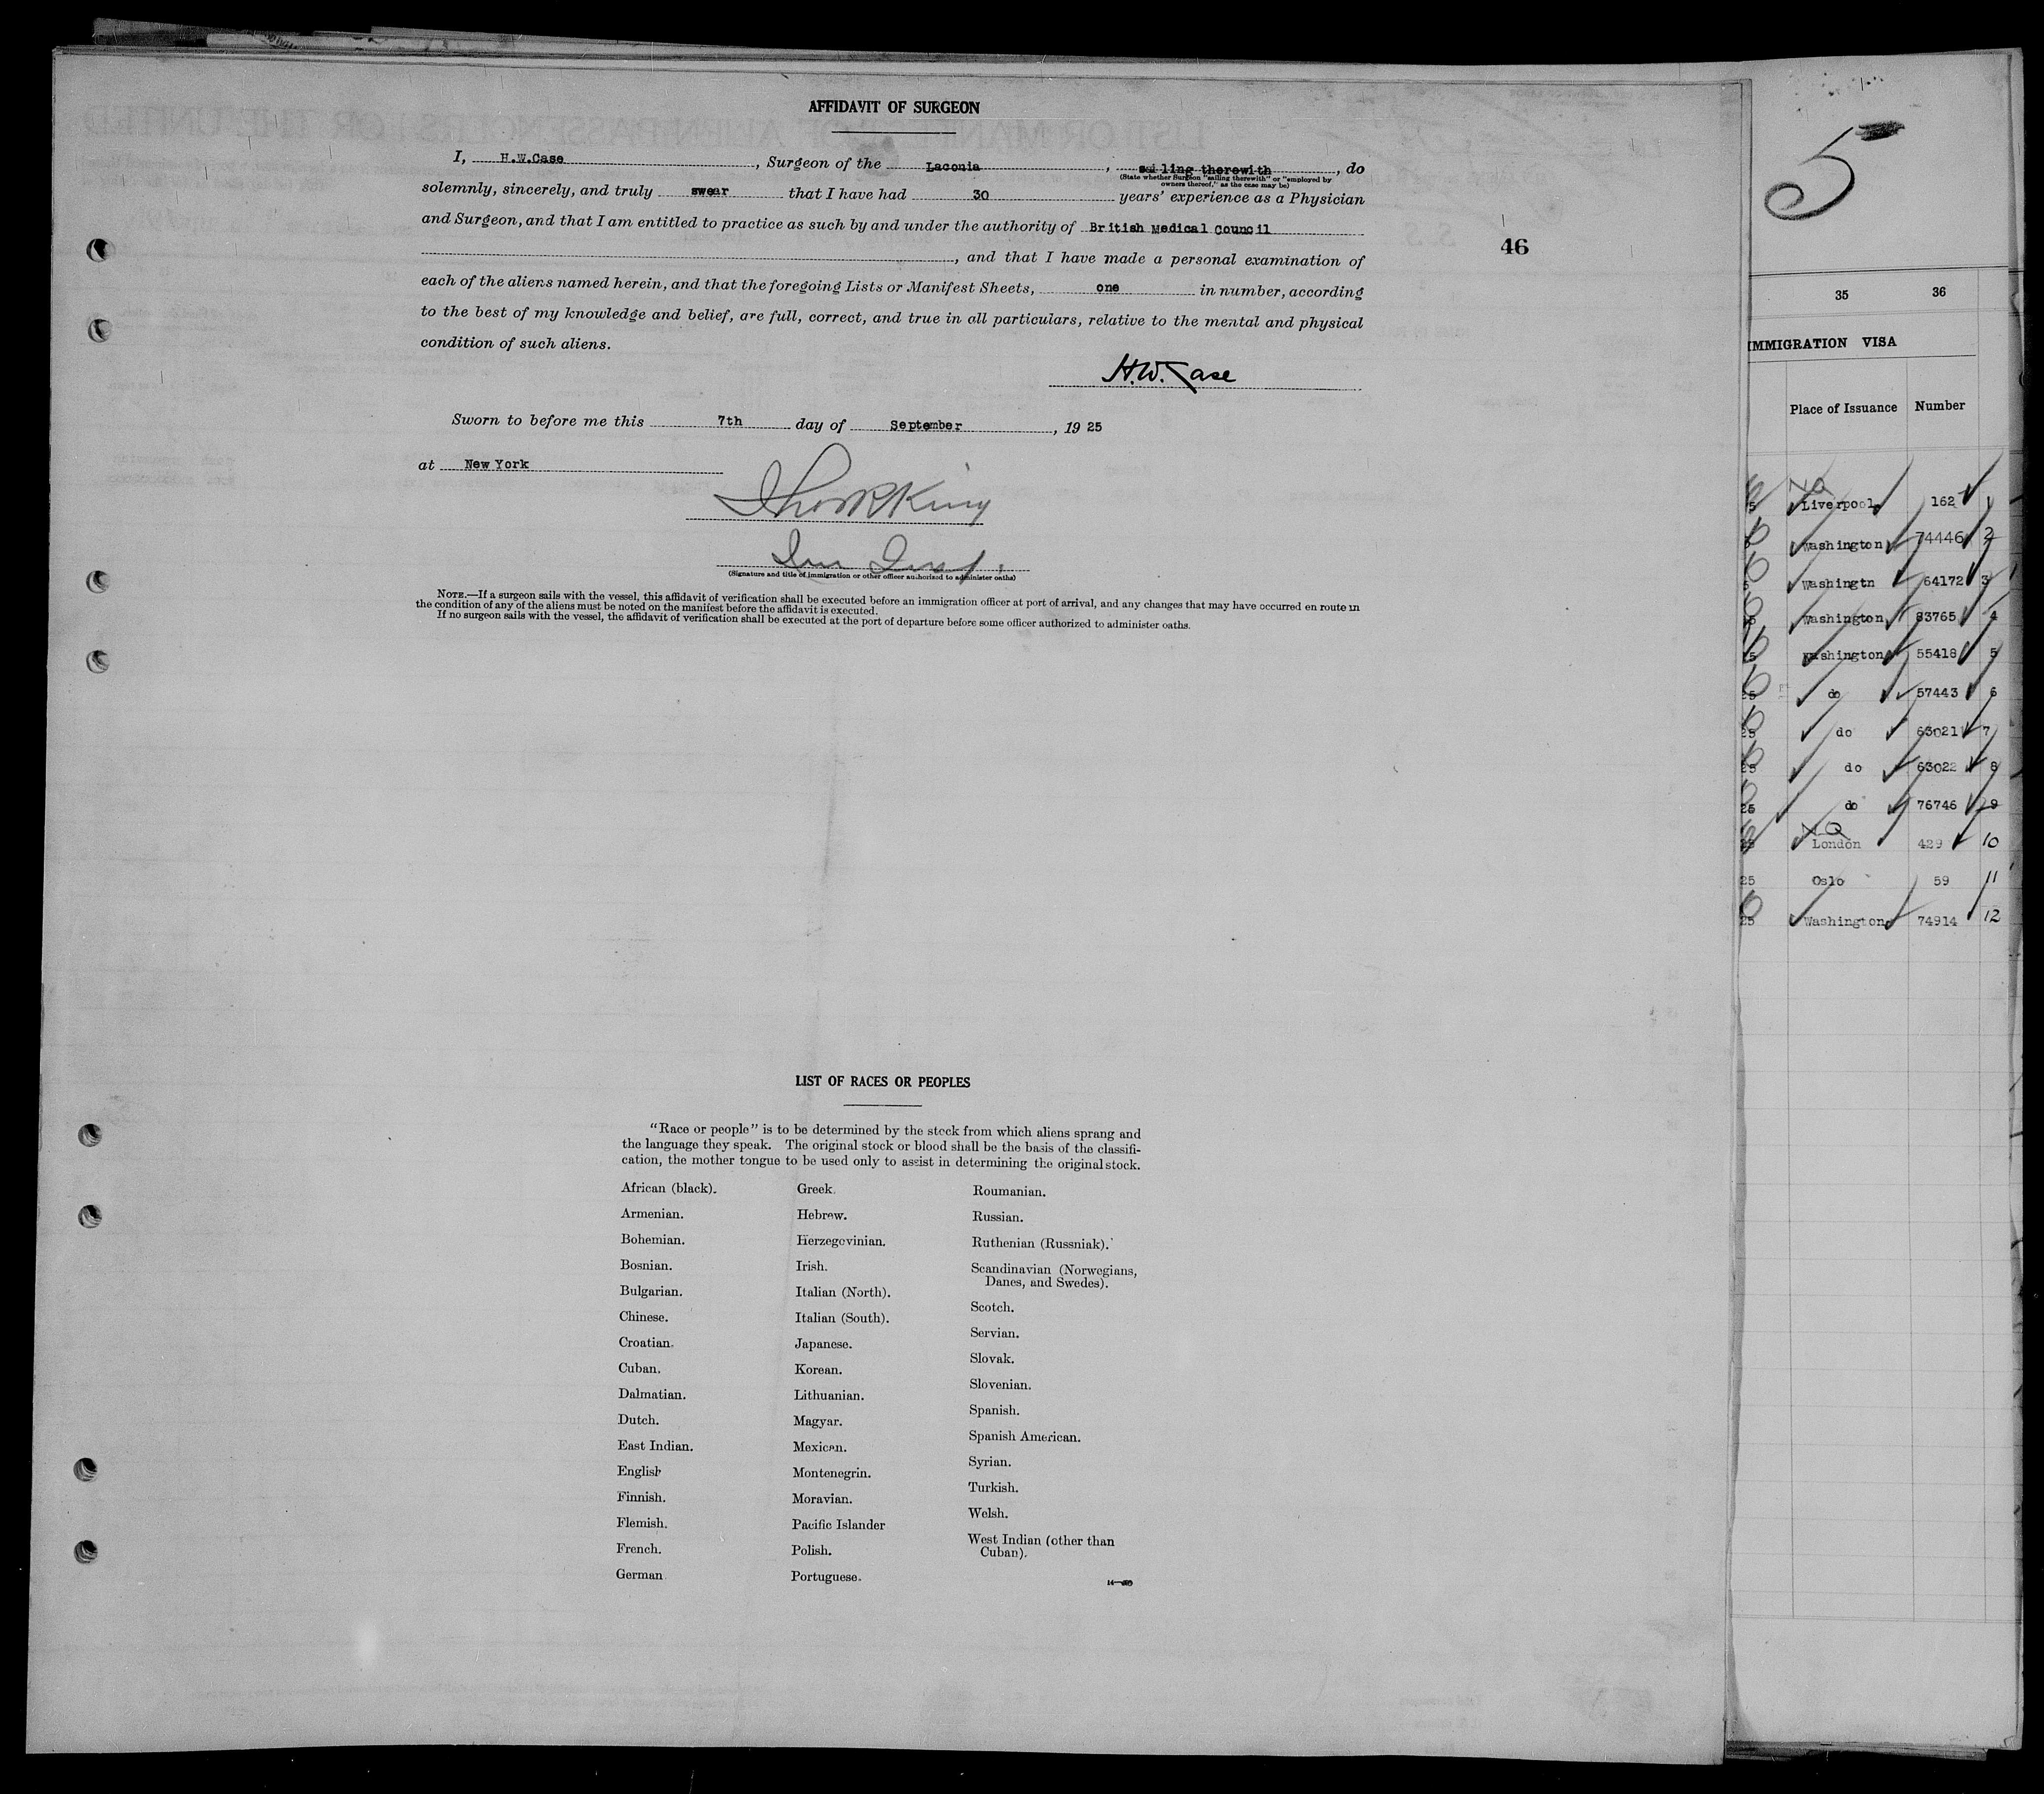 AFFIDAVIT OF SURGEON
I, H.W.Case, Surgeon of the Laconia, sailing therewith, do
(State whether Surgeon "sailing therewith" or "employed by
owners thereof," as the case may be)
solemnly, sincerely, and truly swear that I have had 30 years' experience as a Physician
and Surgeon, and that I am entitled to practice as such by and under the authority of British Medical Council
, and that I have made a personal examination of
each of the aliens named herein, and that the foregoing Lists or Manifest Sheets, one in number, according
to the best of my knowledge and belief, are full, correct, and true in all particulars, relative to the mental and physical
condition of such aliens.
H.W. Case
Sworn to before me this 7th day of September, 19 25
at New York
King
(Signature and title of immigration or other officer authorized to administer oaths)
NOTE.—If a surgeon sails with the vessel, this affidavit of verification shall be executed before an immigration officer at port of arrival, and any changes that may have occurred en route in
the condition of any of the aliens must be noted on the manifest before the affidavit is executed.
If no surgeon sails with the vessel, the affidavit of verification shall be executed at the port of departure before some officer authorized to administer oaths.
46
LIST OF RACES OR PEOPLES
"Race or people" is to be determined by the stock from which aliens sprang and
the language they speak. The original stock or blood shall be the basis of the classifi-
cation, the mother tongue to be used only to assist in determining the original stock.
African (black).
Armenian.
Bohemian.
Bosnian.
Bulgarian.
Chinese.
Croatian.
Cuban.
Dalmatian.
Dutch.
East Indian.
English
Finnish.
Flemish.
French.
German
Greek.
Hebrew.
Herzegovinian.
Irish.
Italian (North).
Italian (South).
Japanese.
Korean.
Lithuanian.
Magyar.
Mexican.
Montenegrin.
Moravian.
Pacific Islander
Polish.
Portuguese.
Roumanian.
Russian.
Ruthenian (Russniak).
Scandinavian (Norwegians,
Danes, and Swedes).
Scotch.
Servian.
Slovak.
Slovenian.
Spanish.
Spanish American.
Syrian.
Turkish.
Welsh.
West Indian (other than
Cuban).
5
35 36
IMMIGRATION VISA
Place of Issuance Number
NQ
Liverpool 162 1
Washington 74446 2
Washingtn 64172 3
Washington 83765 4
Washington 55418 5
do 57443 6
do 63021 7
25 do 63022 8
25 do 76746 9
NQ
London 429 10
25 Oslo 59 11
25 Washington 74914 12